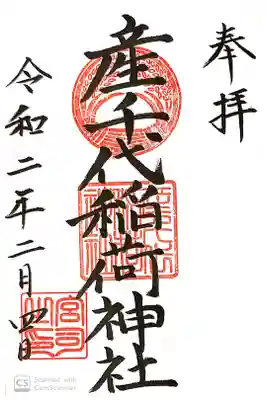 奉拝
産千代稲荷神社
令和二年二月四日
宮司之印
CS Scanned with
CamScanner